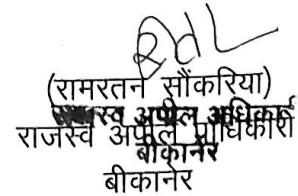 (रामरतन सौंकरिया)
राजस्व अपील अधिकारी
राजस्व अपील प्राधिकारी
बीकानेर
बीकानेर